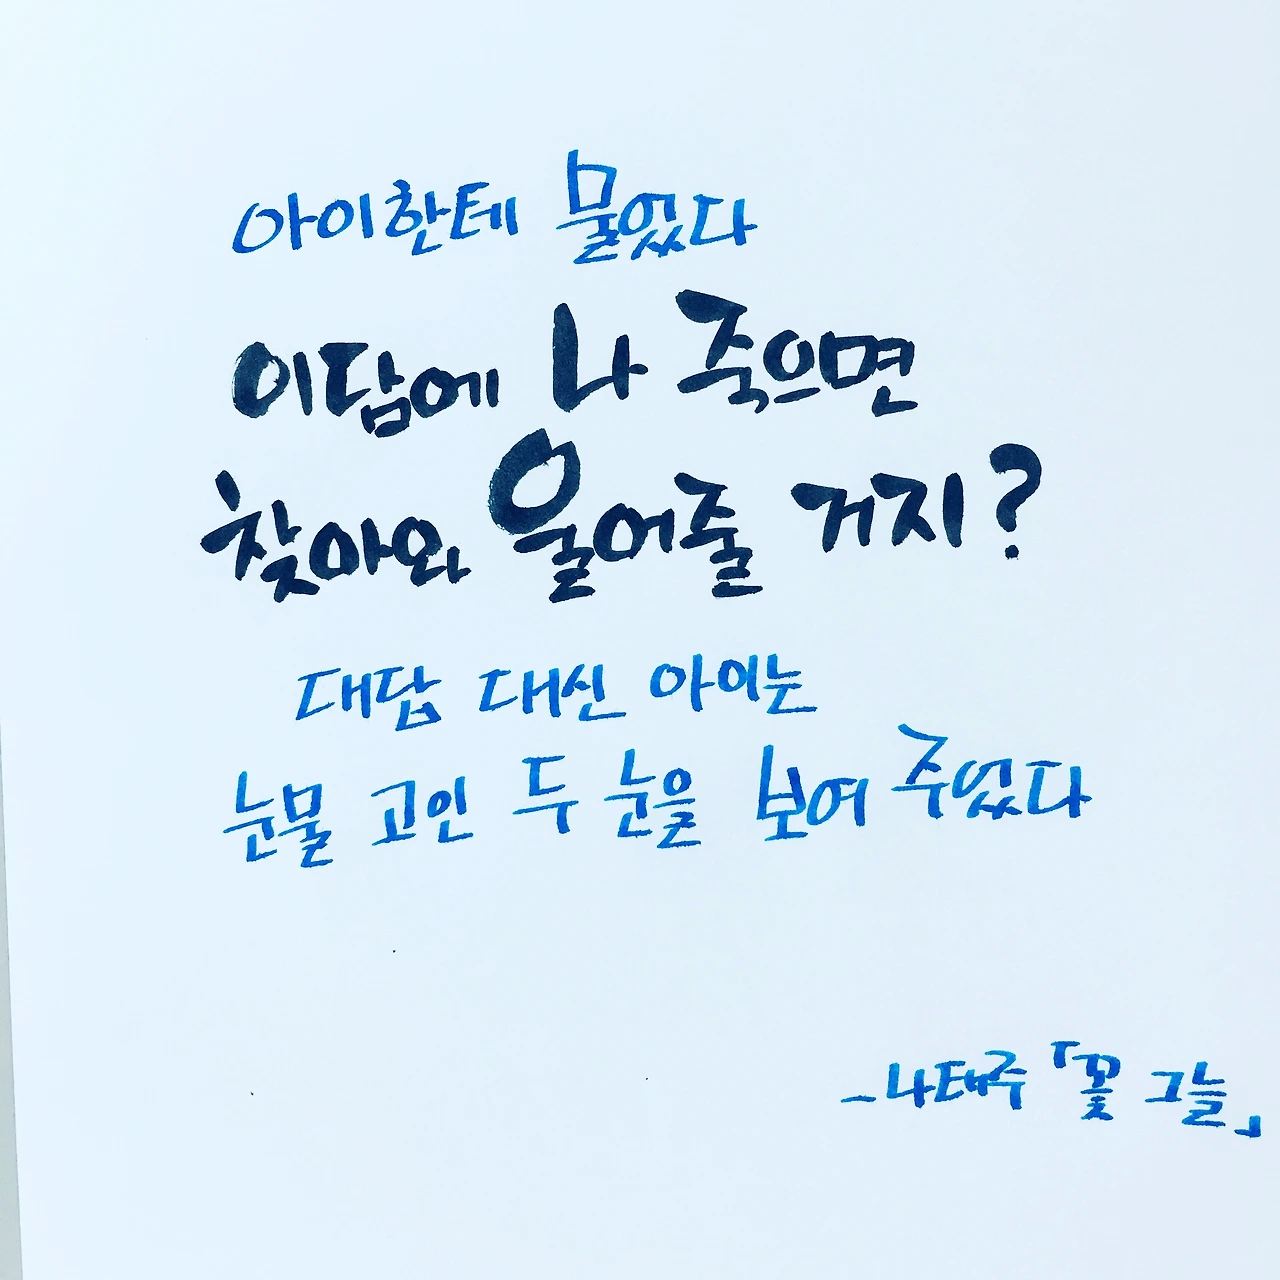 아이한테 물었다
이담에 나 죽으면
찾아와 울어줄 거지?
대답 대신 아이는
눈물 고인 두 눈을 보여 주었다
-나태주 「꽃 그늘」